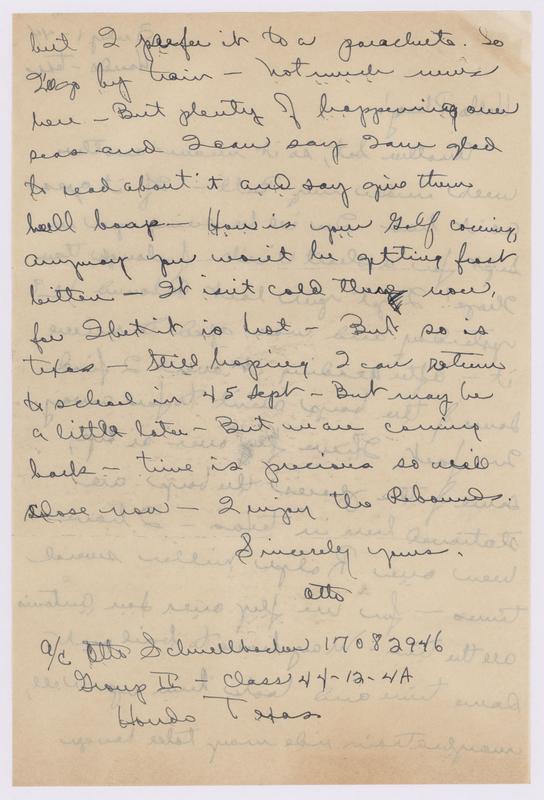 but I prefer it to a parachute. So
I'll go by train — Not much news
here — But plenty of happening over
seas and I can say I am glad
to read about it and say give them
hell boays — How is your Golf coming,
anyway you won't be getting frost
bitten — It isn't cold there now,
for I bet it is hot — But so is
Texas — Still hoping I can return
to school in 45 Sept — But may be
a little later — But we are coming
back — time is precious so will
close now — I enjoy the Rebounds.
Sincerely yours.
Otto
A/C Otto Schnellbacher 17082946
Group II — Class 44-12-4A
Hondo Texas